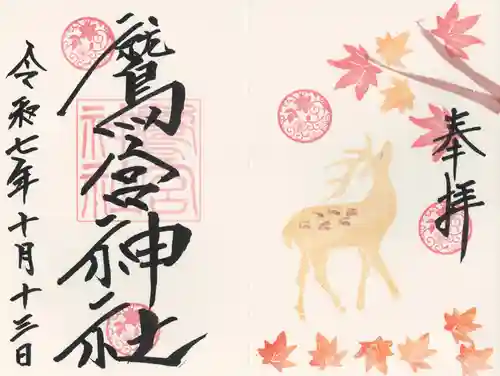 奉拝
鷲宮神社
令和七年十月十三日